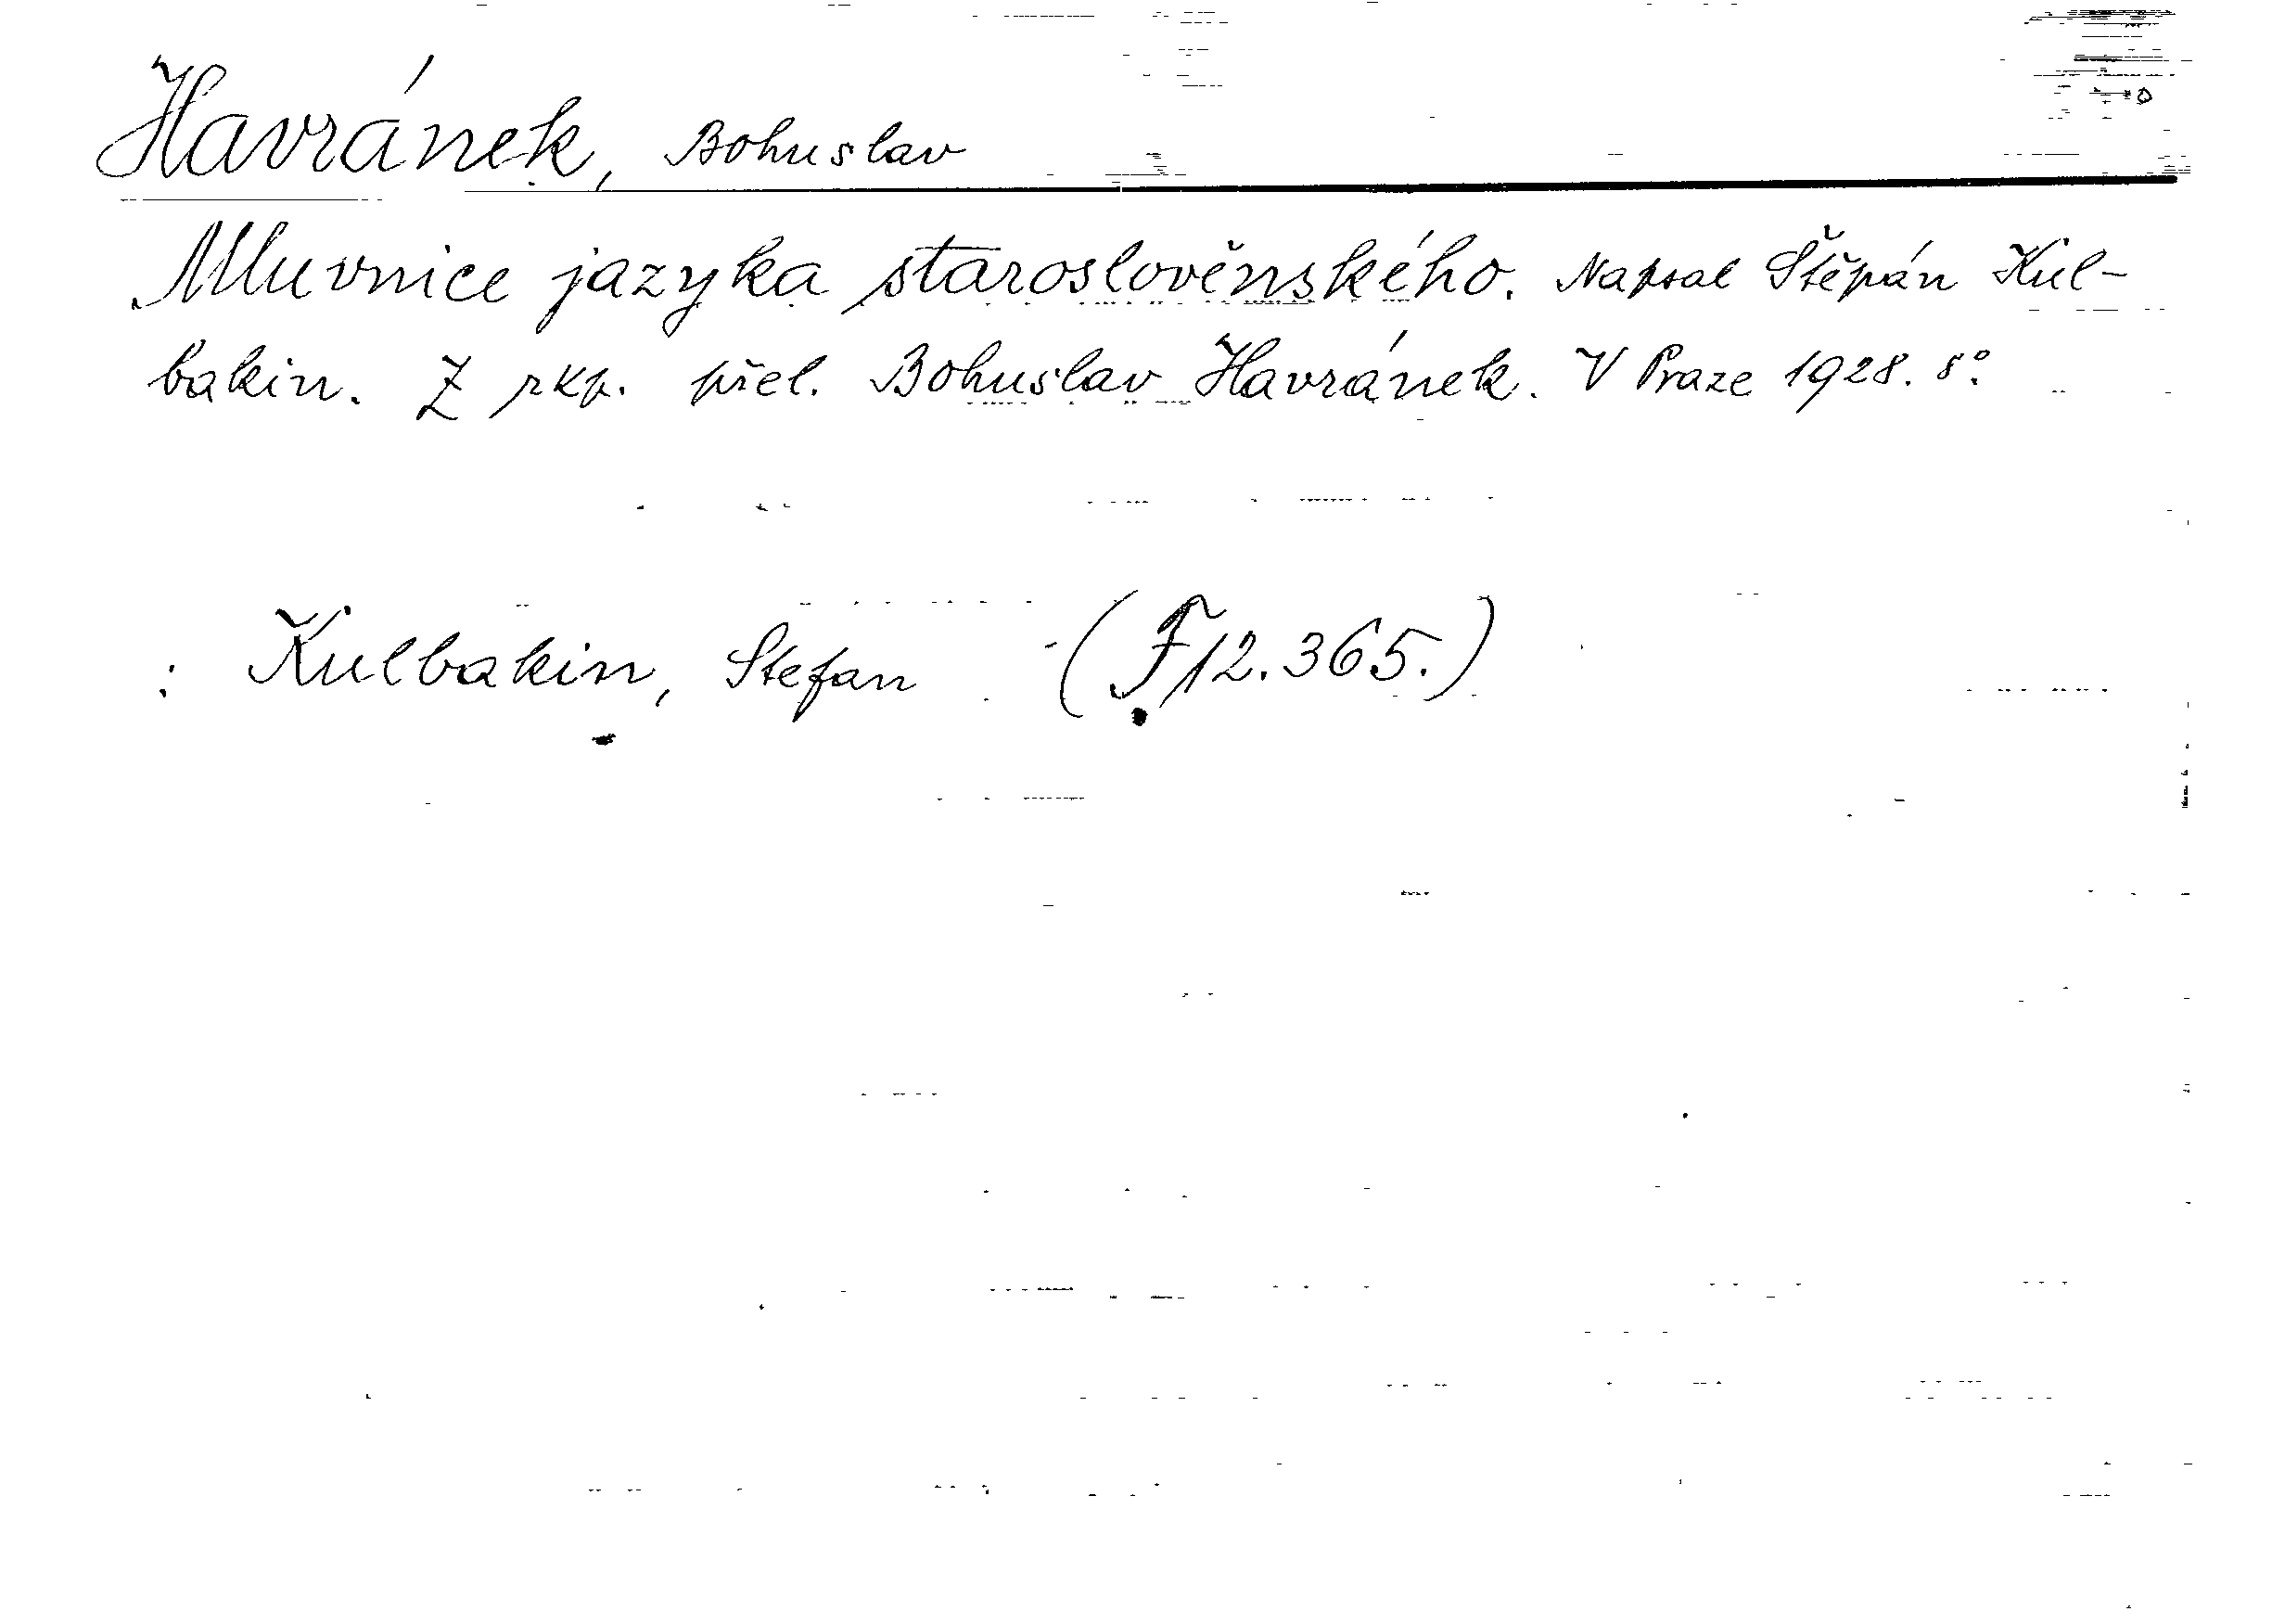 Havránek, Bohuslav
Mluvnice jazyka staroslověnského. Napsal Štěpán Kul-
bakin. Z rkp. přel. Bohuslav Havránek. V Praze 1928. 8°.
: Kulbakin, Stefan (F 12.365.)